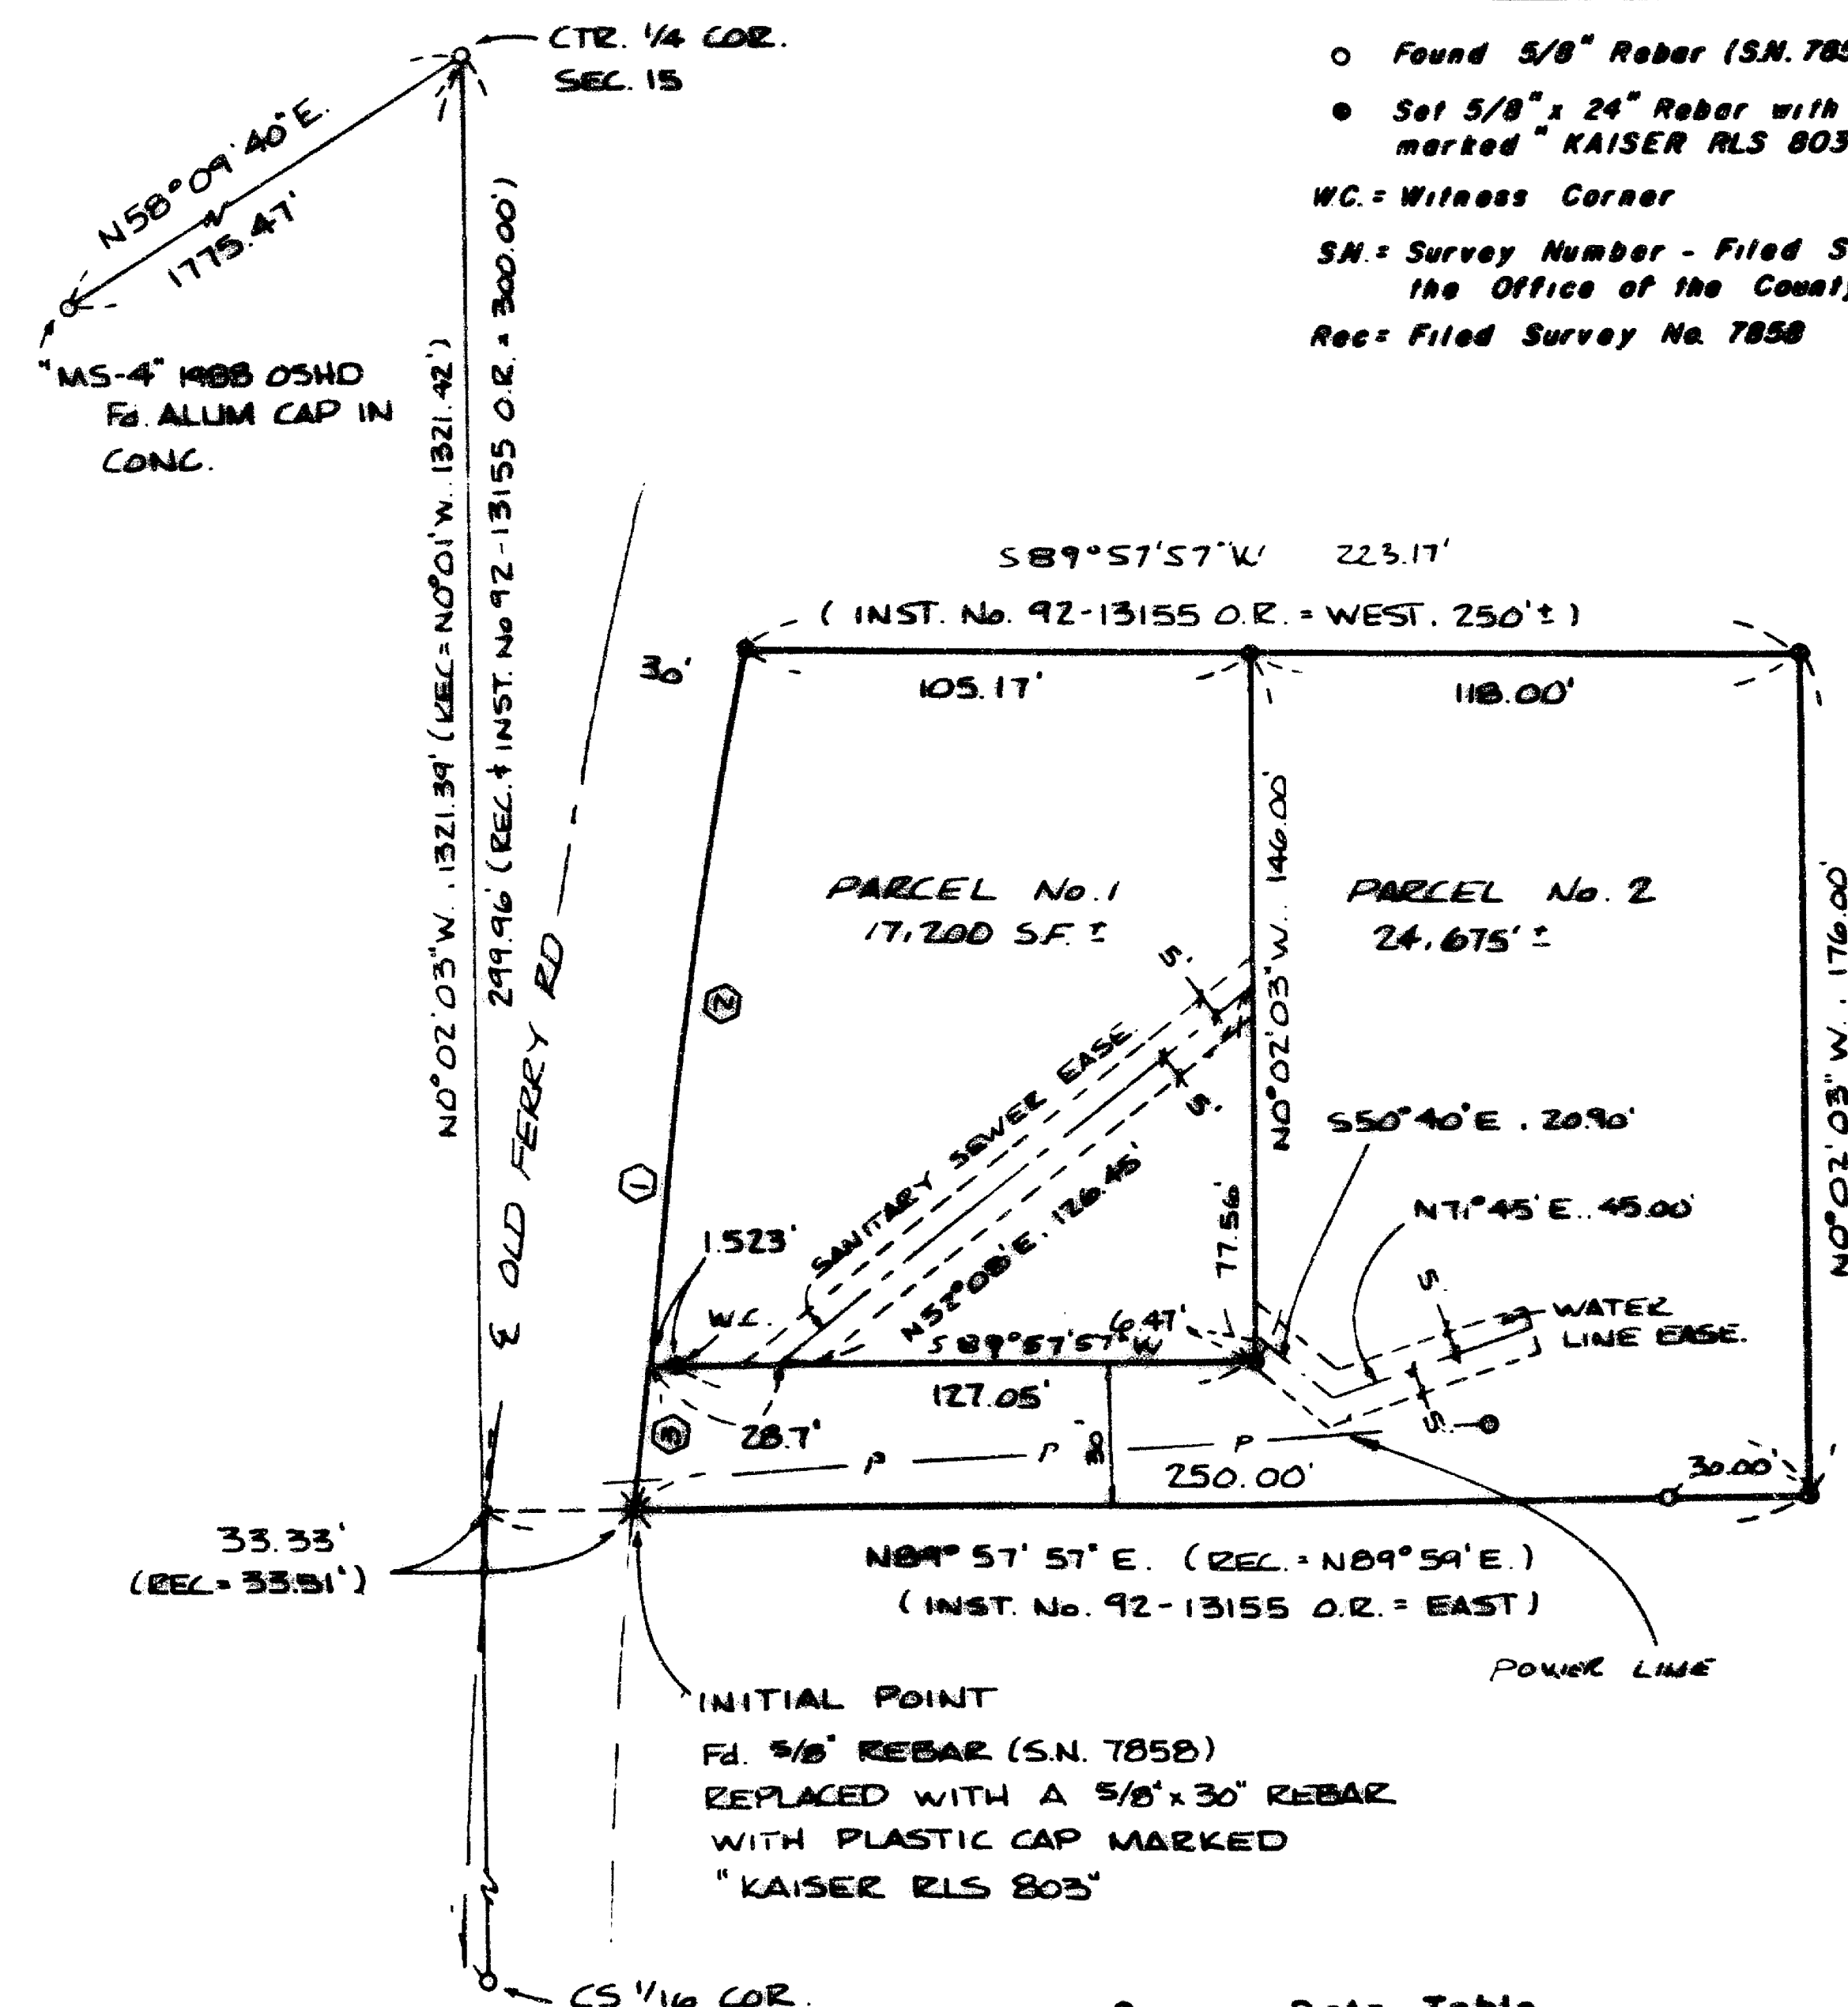 CTR. 1/4 COR.
SEC. 15
N58°09'40"E.
1775.47'
"MS-4" 1988 OSHD
Fd. ALUM CAP IN
CONC.
○ Found 5/8" Rebar (S.N. 785
● Set 5/8" x 24" Rebar with
marked " KAISER RLS 803
W.C. = Witness Corner
S.N. = Survey Number - Filed S
the Office of the County
Rec = Filed Survey No. 7858
N0°02'03"W. . 1321.39' (REC = N0°01'W. . 1321.42')
299.96' (REC. & INST. No 92-13155 O.R. = 300.00')
℄ OLD FERRY RD
S89°57'57"W 223.17'
( INST. No. 92-13155 O.R. = WEST. 250'± )
30'
105.17'
118.00'
PARCEL No. 1
17,200 S.F. ±
PARCEL No. 2
24,675' ±
N0°02'03"W. . 146.00'
N0°02'03"W. . 176.00'
5'
5'
2
1
SANITARY SEWER EASE.
N52°08'E. 126.45'
S50°40'E . 20.90'
N71°45'E. . 45.00'
77.56'
1.523'
W.C.
6.47'
S89°57'57"W
5'
WATER
LINE EASE.
127.05'
5'
3
28.7'
30'
P P P
250.00'
30.00'
33.33'
(REC = 33.51')
N89°57'57"E. (REC. = N89°59'E.)
( INST. No. 92-13155 O.R. = EAST )
POWER LINE
INITIAL POINT
Fd. 5/8" REBAR (S.N. 7858)
REPLACED WITH A 5/8" x 30" REBAR
WITH PLASTIC CAP MARKED
" KAISER RLS 803"
CS 1/16 COR.
Data Table